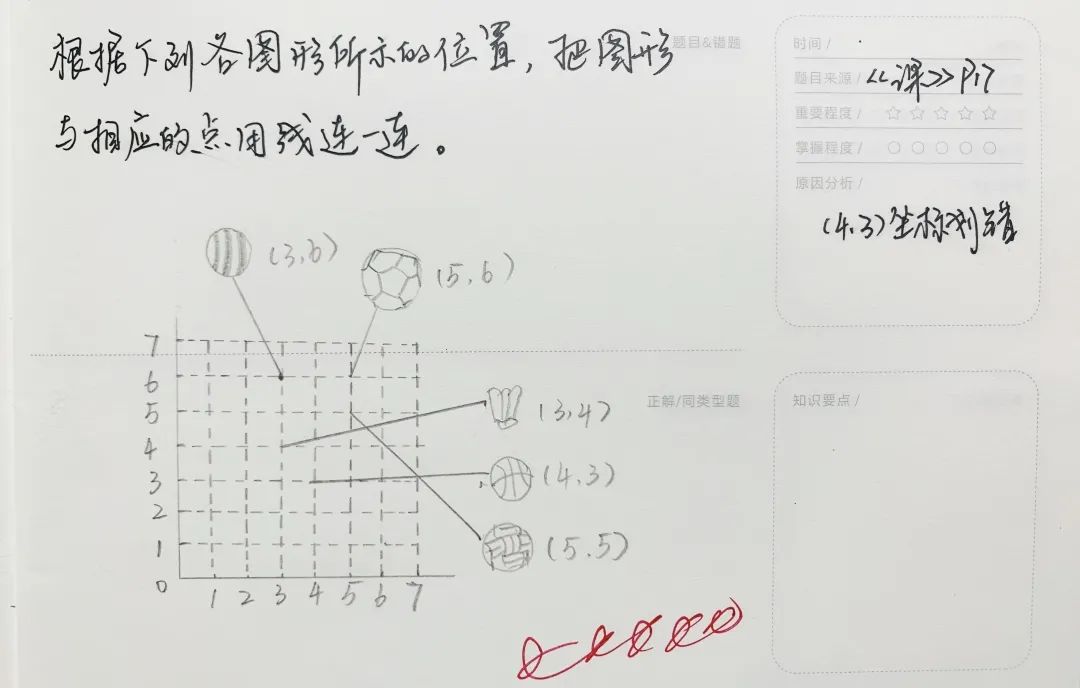 根据下列各图形所示的位置，把图形
与相应的点用线连一连。
题目&错题
时间 /
题目来源 / 《课》P17
重要程度 / ☆ ☆ ☆ ☆ ☆
掌握程度 / ○ ○ ○ ○ ○
原因分析 /
(4.3)坐标划错
(3,6)
(5,6)
正解/同类型题
知识要点 /
(3,4)
(4.3)
(5.5)
7
6
5
4
3
2
1
0
1 2 3 4 5 6 7